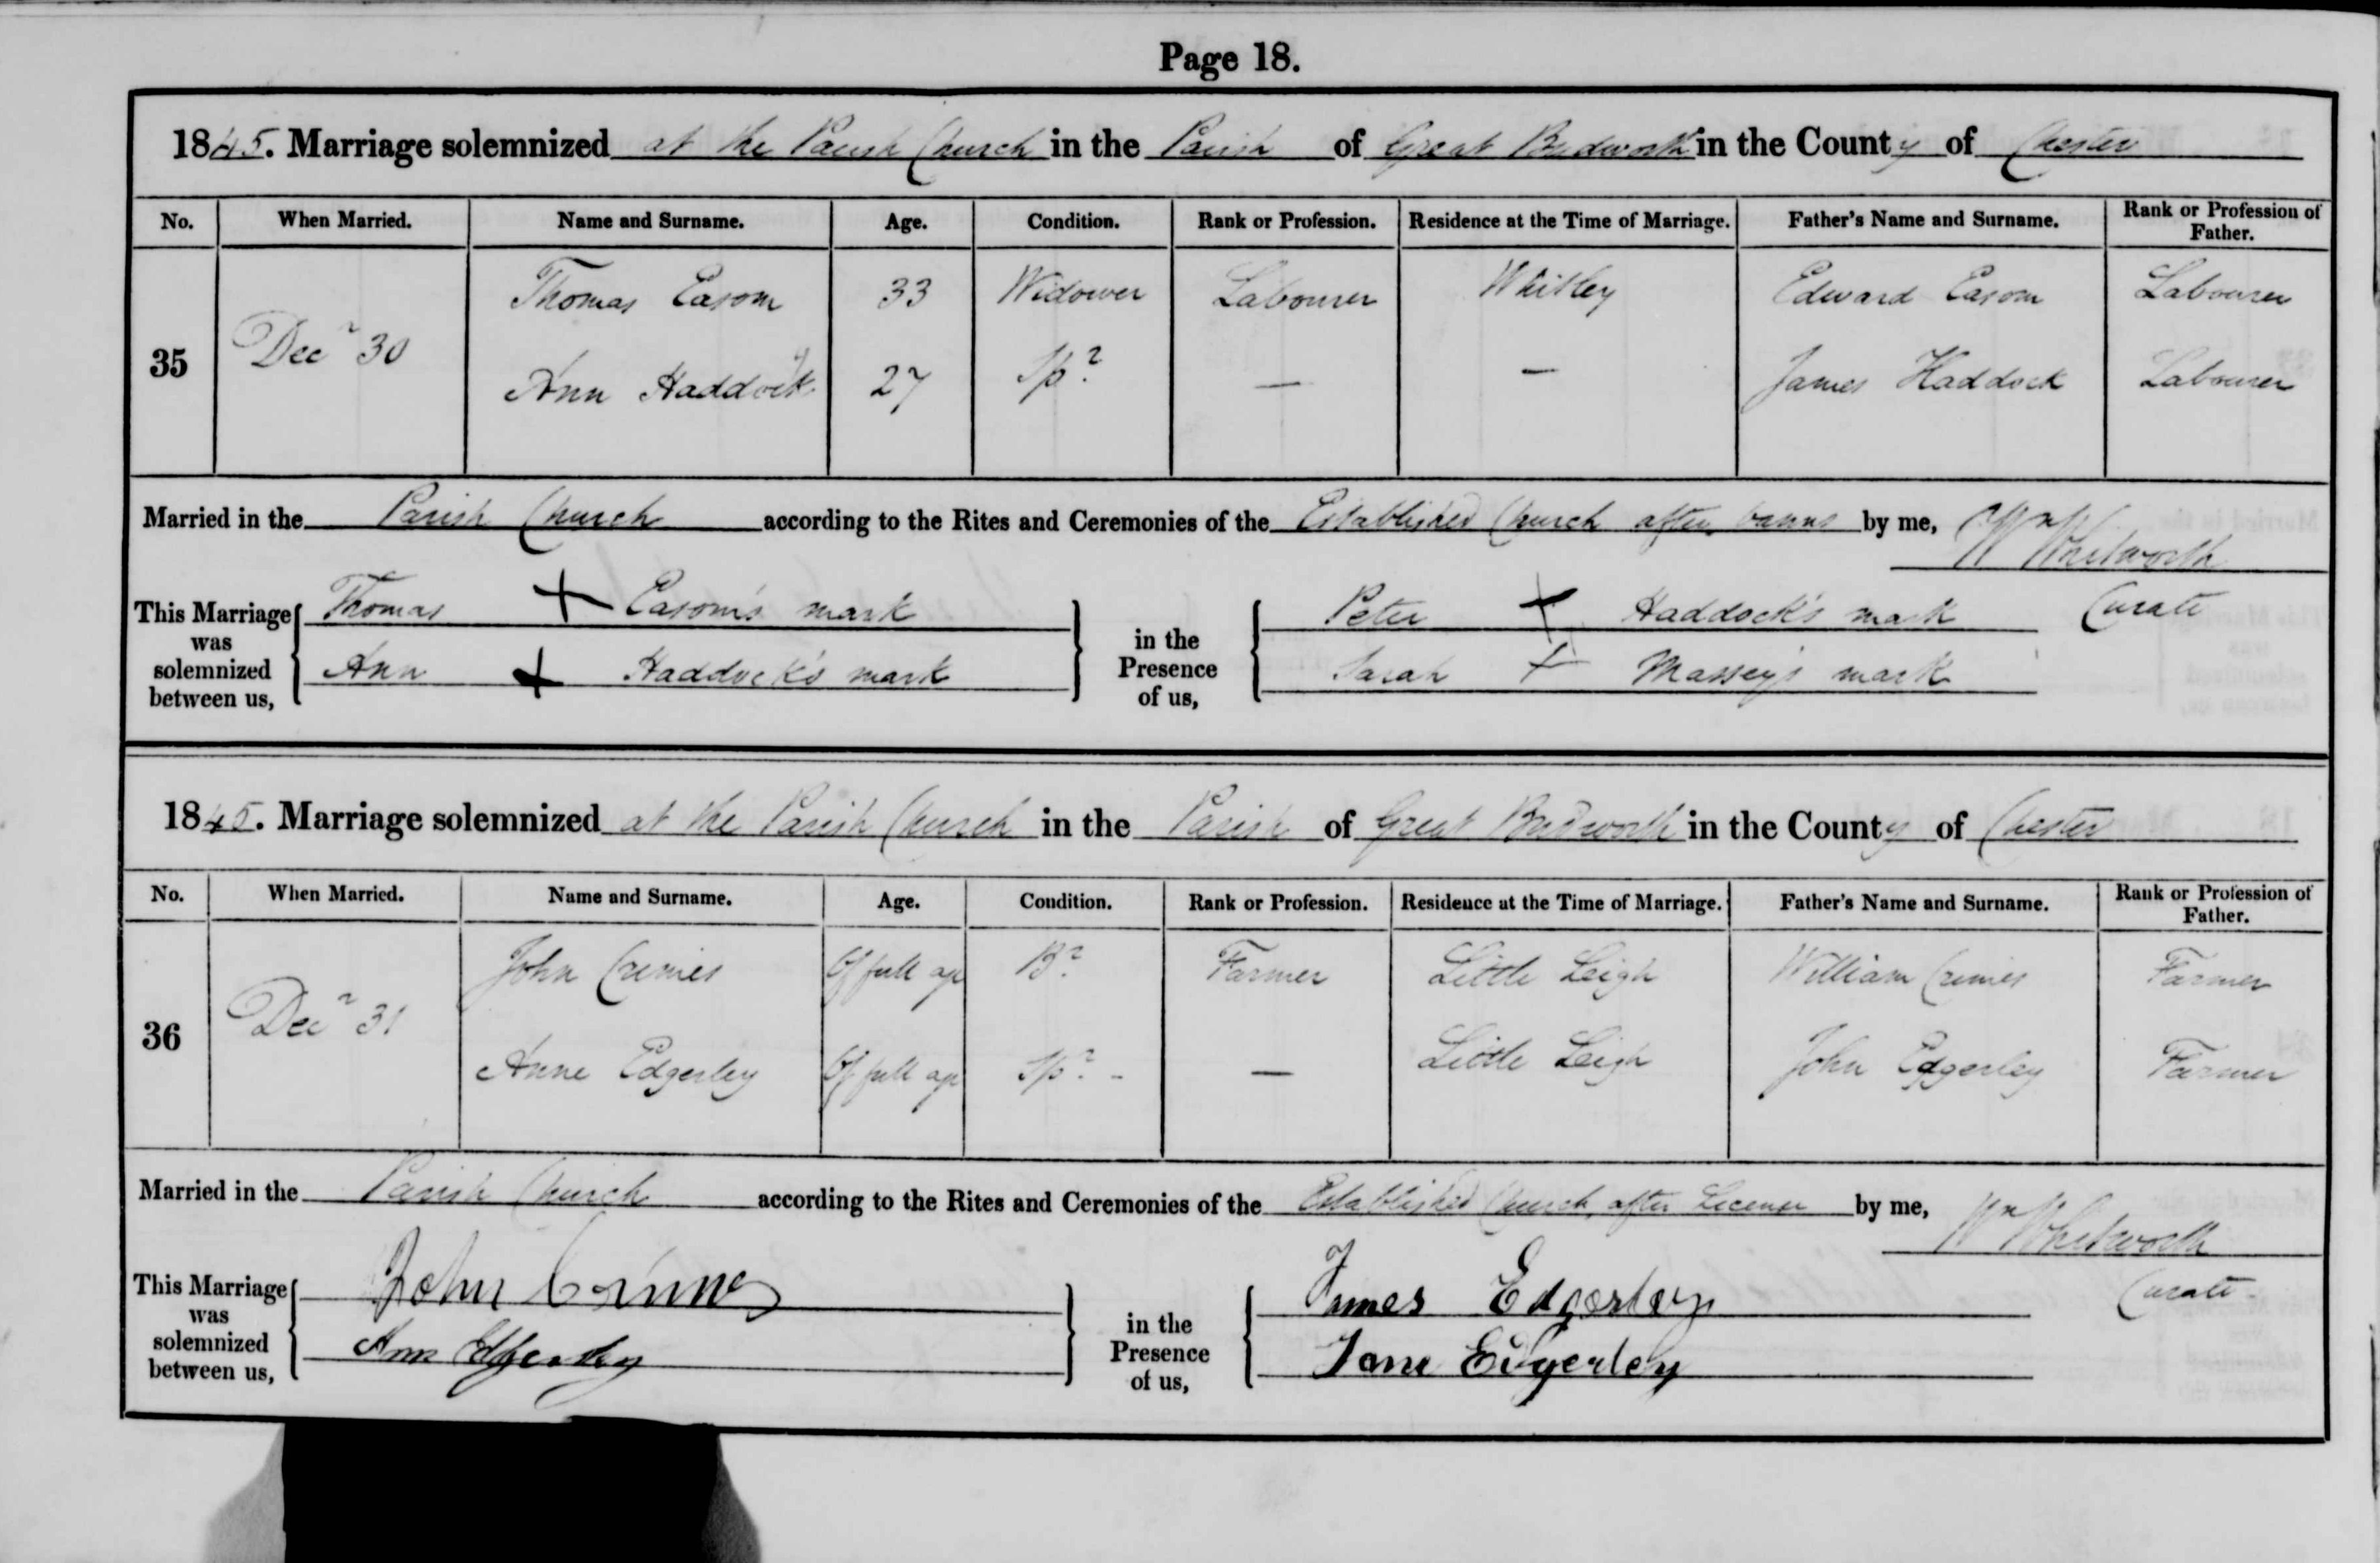 Page 18.
1845. Marriage solemnized at the Parish Church in the Parish of Great Budworth in the County of Chester
No. When Married. Name and Surname. Age. Condition. Rank or Profession. Residence at the Time of Marriage. Father's Name and Surname. Rank or Profession of Father.
Thomas Easom 33 Widower Labourer Whitley Edward Easom Labourer
35 Decr 30
Ann Haddock 27 Spr — — James Haddock Labourer
Married in the Parish Church according to the Rites and Ceremonies of the Established Church after banns by me,
Wm Whitworth
Curate
This Marriage was solemnized between us,
Thomas + Easom's mark
Ann + Haddock's mark
in the Presence of us,
Peter + Haddock's mark
Sarah + Massey's mark
1845. Marriage solemnized at the Parish Church in the Parish of Great Budworth in the County of Chester
No. When Married. Name and Surname. Age. Condition. Rank or Profession. Residence at the Time of Marriage. Father's Name and Surname. Rank or Profession of Father.
John Crimes Of full age Br Farmer Little Leigh William Crimes Farmer
36 Decr 31
Anne Edgerley Of full age Spr - — Little Leigh John Edgerley Farmer
Married in the Parish Church according to the Rites and Ceremonies of the Established Church, after Licence by me,
Wm Whitworth
Curate
This Marriage was solemnized between us,
John Crimes
Ann Edgerley
in the Presence of us,
James Edgerley
Jane Edgerley